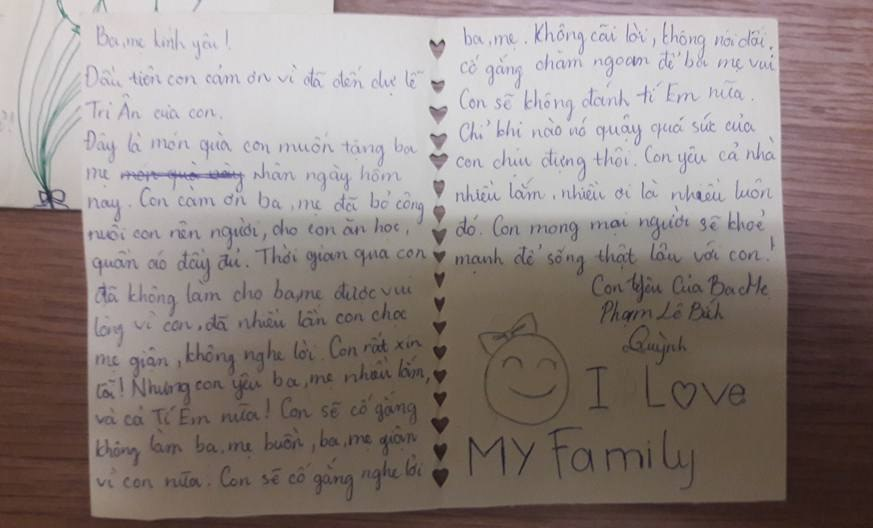 Ba, mẹ kính yêu!
Đầu tiên con cảm ơn vì đã đến dự lễ
Tri Ân của con.
Đây là món quà con muốn tặng ba
mẹ món quà này nhân ngày hôm
nay. Con cảm ơn ba, mẹ đã bỏ công
nuôi con nên người, cho con ăn học,
quần áo đầy đủ. Thời gian qua con
đã không làm cho ba, mẹ được vui
lòng vì con, đã nhiều lần con chọc
mẹ giận, không nghe lời. Con rất xin
lỗi! Nhưng con yêu ba, mẹ nhiều lắm,
và cả Tí Em nữa! Con sẽ cố gắng
không làm ba, mẹ buồn, ba, mẹ giận
vì con nữa. Con sẽ cố gắng nghe lời
ba, mẹ. Không cãi lời, không nói dối,
cố gắng chăm ngoan để ba mẹ vui
Con sẽ không đánh tí Em nữa.
Chỉ khi nào nó quậy quá sức của
con chịu đựng thôi. Con yêu cả nhà
nhiều lắm, nhiều ơi là nhiều luôn
đó. Con mong mọi người sẽ khoẻ
mạnh để sống thật lâu với con!
Con Yêu Của Ba Mẹ
Phạm Lê Bích
Quỳnh
I Love
My Family